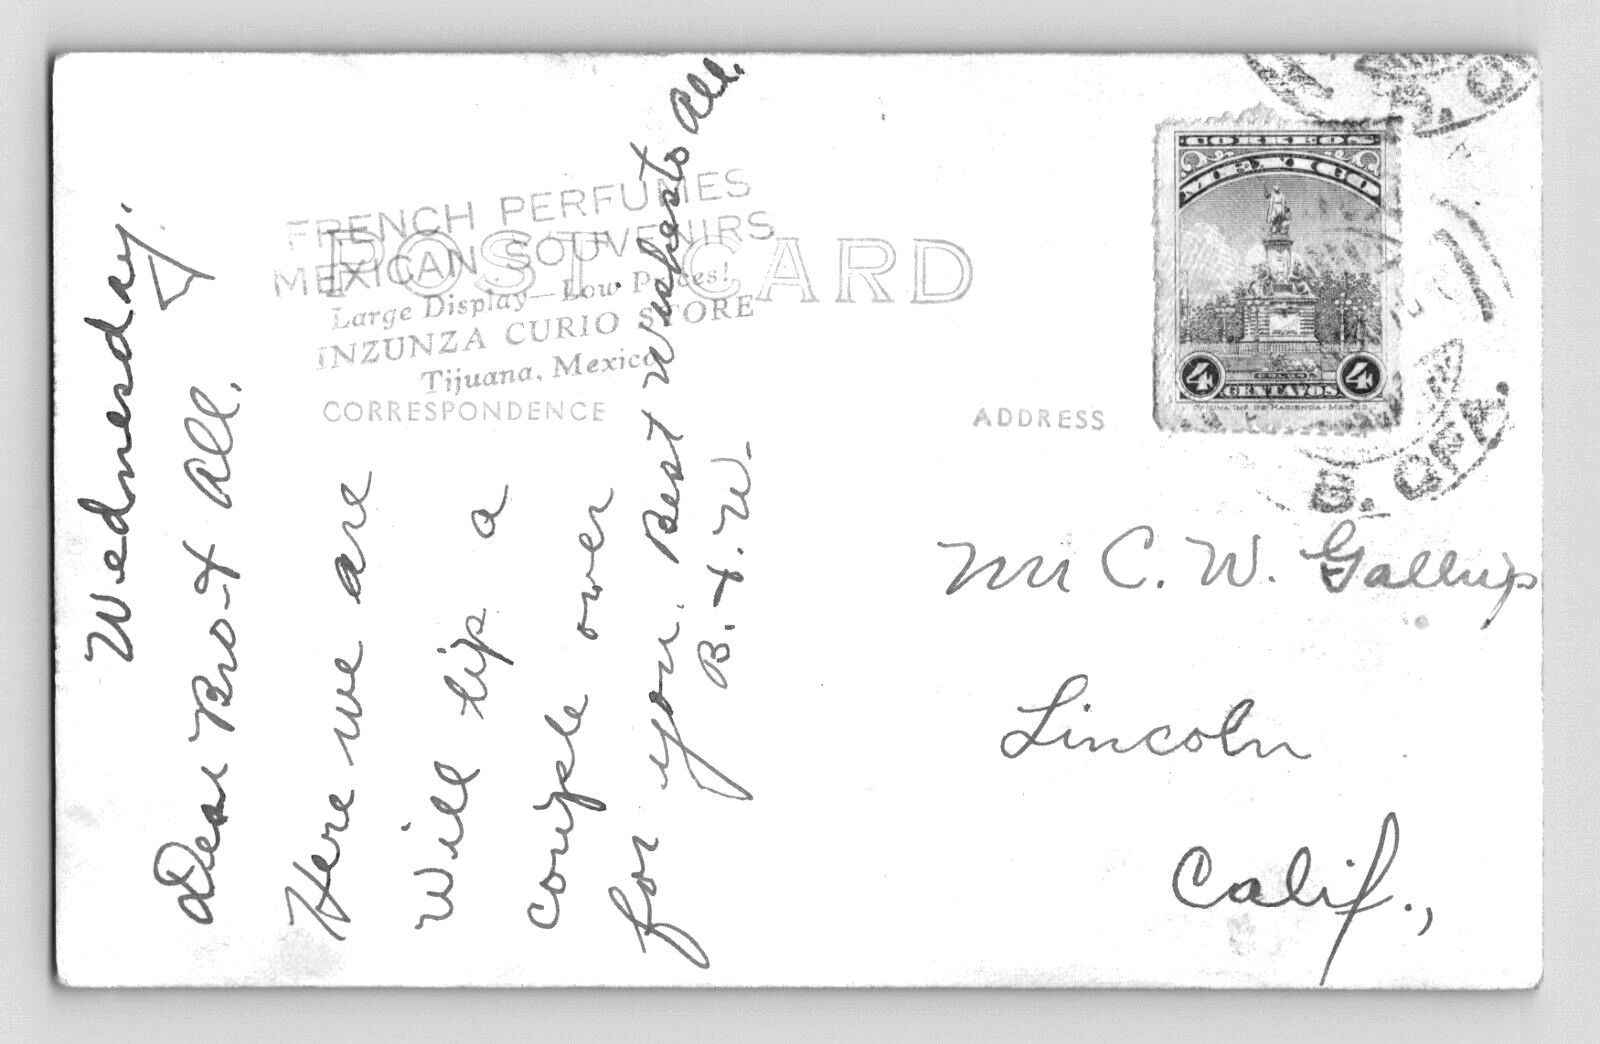 Wednesday.
Dear Bro. & All.
Here we are
Will tip a
couple over
for you. Best Wishes to All.
B. & W.
FRENCH PERFUMES
MEXICAN SOUVENIRS
Large Display—Low Prices!
INZUNZA CURIO STORE
Tijuana, Mexico
POST CARD
CORRESPONDENCE
ADDRESS
CORREOS
MEXICO
4 COLON 4
CENTAVOS
OFICINA IMP. DE HACIENDA-MEXICO
B. CFA.
Mr C. W. Gallup
Lincoln
Calif.,